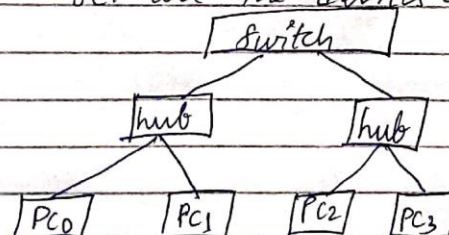 Switch
hub hub
PC0 PC1 PC2 PC3